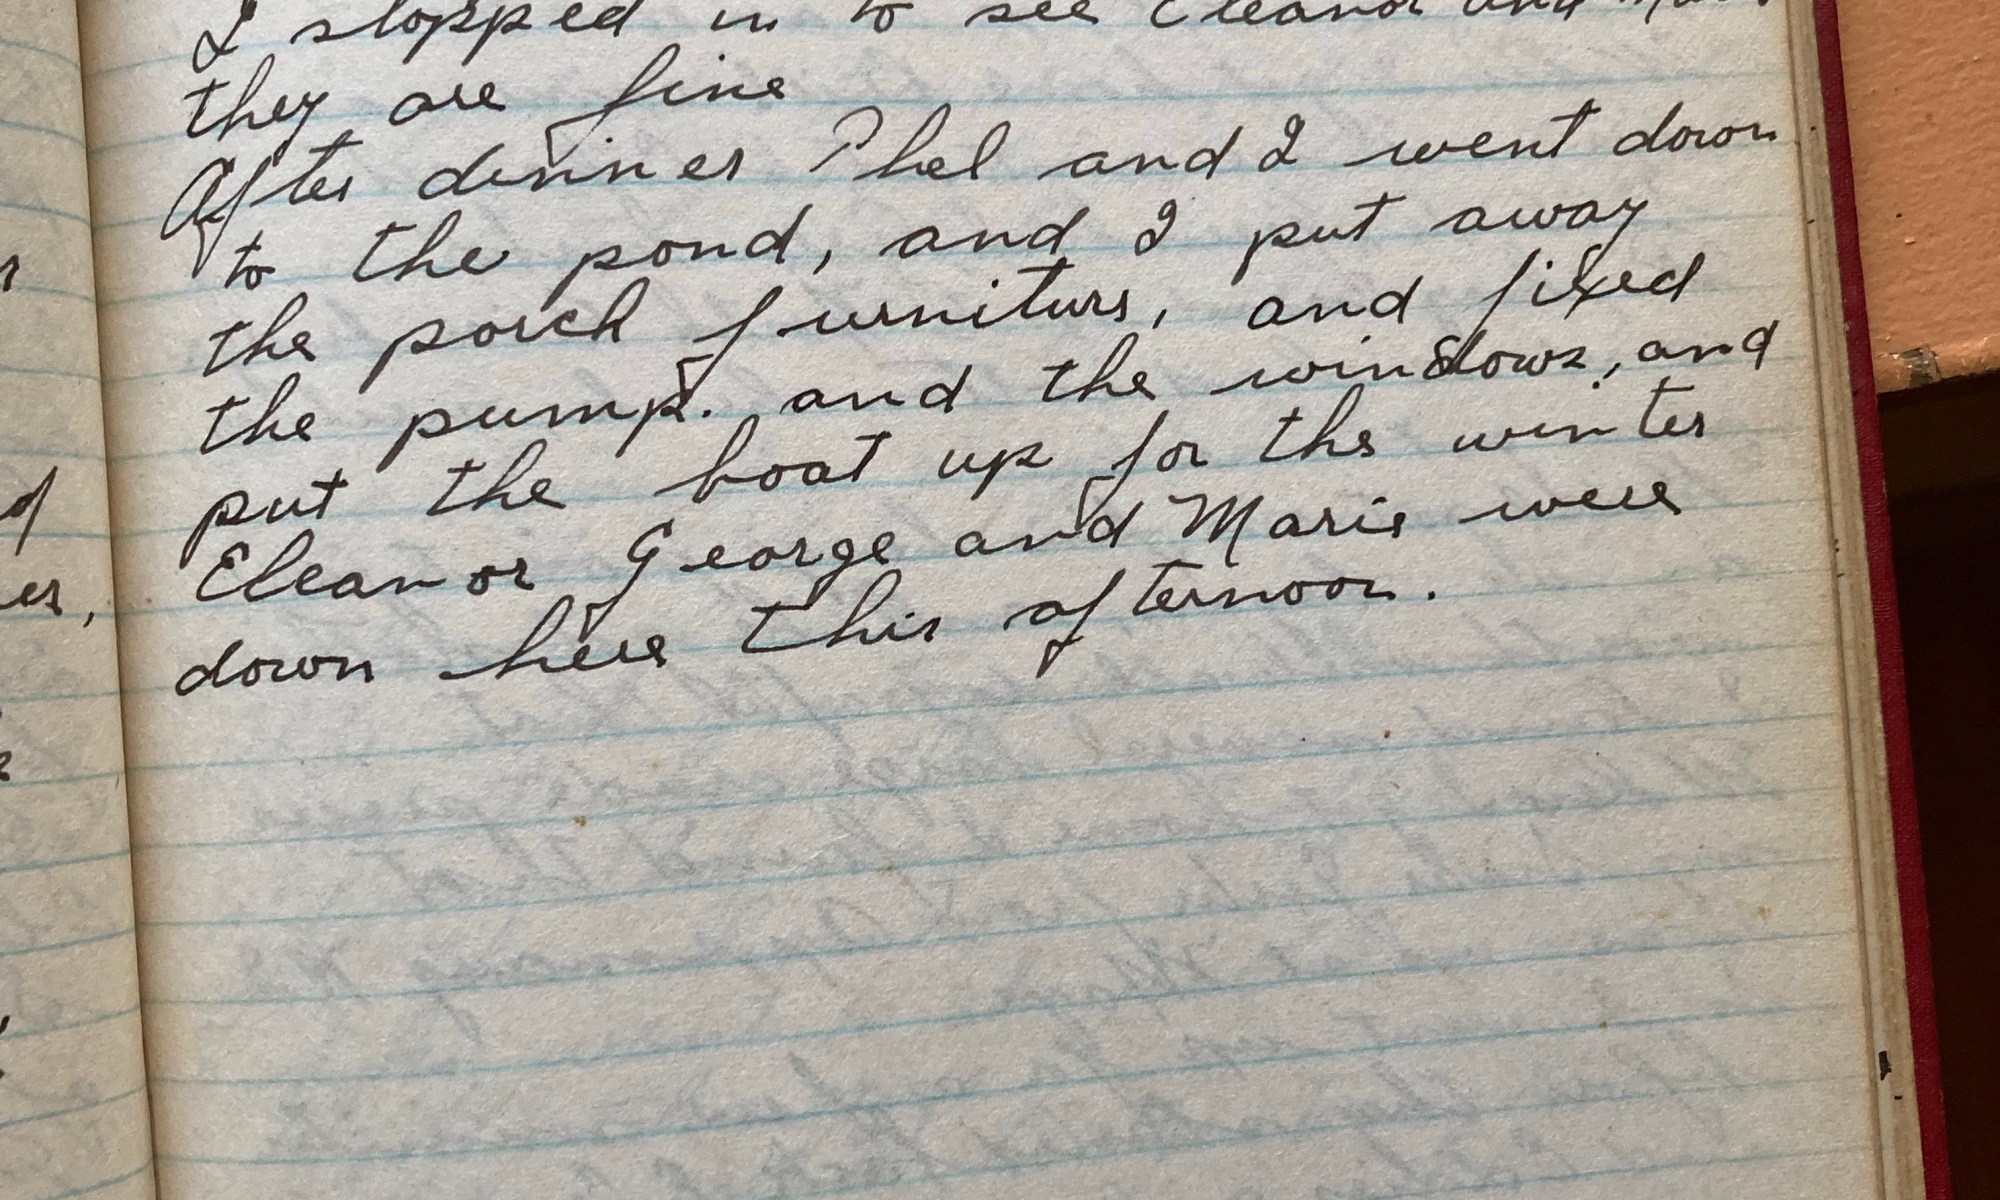 I stopped in to see Eleanor and
they are fine
After dinner Phel and I went down
to the pond, and I put away
the porch furniture, and fixed
the pump. and the windows, and
put the boat up for the winter
Eleanor George and Marie were
down here this afternoon.